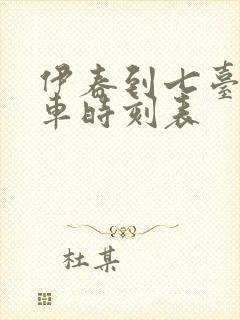 伊春到七臺
車時刻表
杜某